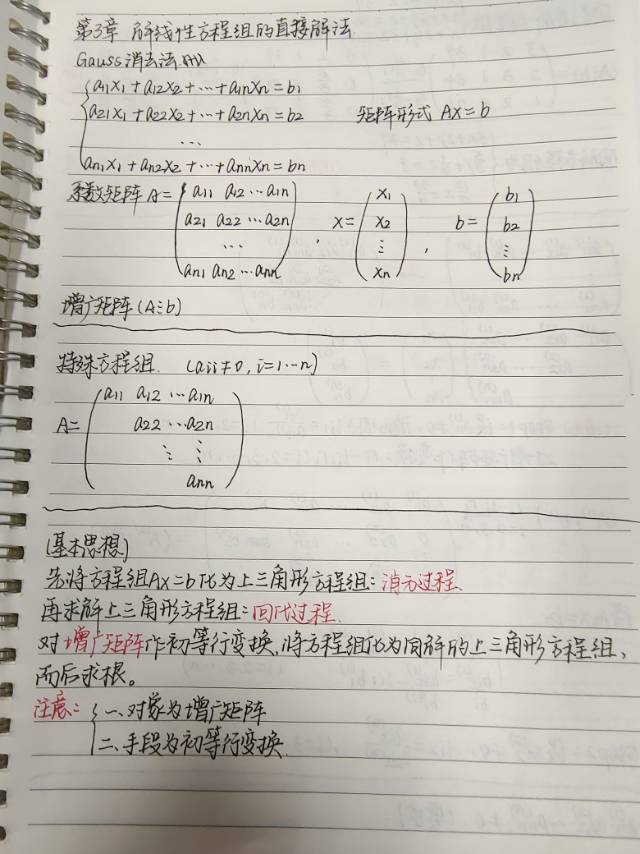 第3章 解线性方程组的直接解法
Gauss消去法
a11x1+a12x2+…+a1nxn=b1
a21x1+a22x2+…+a2nxn=b2 矩阵形式 AX=b
…
an1x1+an2x2+…+annxn=bn
系数矩阵A= ( a11 a12 … a1n
a21 a22 … a2n
…
an1 an2 … ann ) , x= ( x1
x2
⋮
xn ) , b= ( b1
b2
⋮
bn )
增广矩阵(A⋮b)
特殊方程组. (aii≠0, i=1…n)
A= ( a11 a12 … a1n
a22 … a2n
⋮ ⋮
ann )
[基本思想]
先将方程组Ax=b化为上三角形方程组:消元过程.
再求解上三角形方程组:回代过程.
对增广矩阵作初等行变换,将方程组化为同解的上三角形方程组,
而后求根。
注意: { 一、对象为增广矩阵
二、手段为初等行变换.